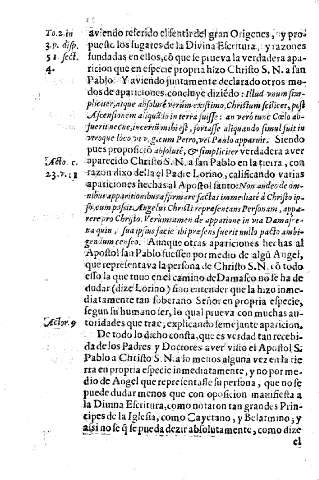 To.2.in
3.p. disp.
51. sect.
4.
aviendo referido el sentir del gran Origenes, y pro-
pueste los lugares de la Divina Escritura, y razones
fundadas en ellos, cõ que se prueva la verdadera apa-
ricion, que en especie propria hizo Christo S. N. a san
Pablo. Y aviendo juntamente declarado otros mo-
dos de apariciones, concluye diziẽdo: Illud unum sim-
pliciter, atque absolutè verum existimo, Christum scilicet, post
Ascensionem aliquãdo in terra fuisse: an verò tunc Cælo ab-
fuerit necne, incertũ mihi est, fortasse aliquando simul fuit in
utroque loco vt v. g. cum Petro, vel Paulo apparuit. Siendo
Acto. c.
23. v. 11
pues proposiciõ absolutè, & simpliciter verdadera aver
aparecido Christo S. N. a san Pablo en la tierra, con
razon dixo della el Padre Lorino, calificando varias
apariciones hechas al Apostol santo: Non audeo de om-
nibus apparitionibus affirmare factas immediatè à Christo ip-
so, cum possit Angelus Christi repræsentans Personam, appa-
rere pro Christo. Verumtamen de apparione in via Damasce-
na quin, sua ipsius facie ibi præsens fuerit nullo pacto ambi-
gendum censeo. Aunque otras apariciones hechas al
Apostol san Pablo fuessen por medio de algũ Angel,
que representava la persona de Christo S. N. cõ todo
esso la que tuuo en el camino de Damasco no se ha de
dudar (dize Lorino) sino entender que la hizo inme-
diatamente tan soberano Señor en propria especie,
segun su humano ser, lo qual prueva con muchas au-
Actor. 9
toridades que trae, explicando semejante aparicion.
De todo lo dicho consta, que es verdad tan recebi-
da de los Padres y Doctores aver visto el Apostol S.
Pablo a Christo S. N. a lo menos alguna vez en la tie
rra en propria especie inmediatamente, y no por me-
dio de Angel que representasse su persona, que no se
puede dudar menos que con oposicion manifiesta a
la Divina Escritura, como notaron tan grandes Prin-
cipes de la Iglesia, como Cayetano, y Belarmino; y
assi no se q̃ se pueda dezir absolutamente, como dize
el